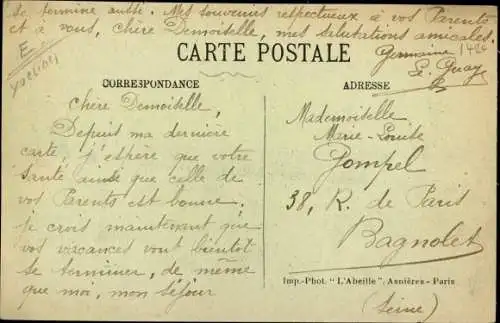 se termine aussi. Mes souvenirs respectueux à vos Parents
et à vous, chère Demoiselle, mes salutations amicales.
Germaine
Le Guay
E
CARTE POSTALE
CORRESPONDANCE
ADRESSE
Chère Demoiselle,
Depuis ma dernière
carte, j'espère que votre
santé ainsi que celle de
vos Parents est bonne.
je crois maintenant que
vos vacances vont bientôt
se terminer, de même
que moi, mon séjour
Mademoiselle
Marie-Louise
Pompel
38, R. de Paris
Bagnolet
(Seine)
Imp.-Phot. "L'Abeille", Asnières-Paris